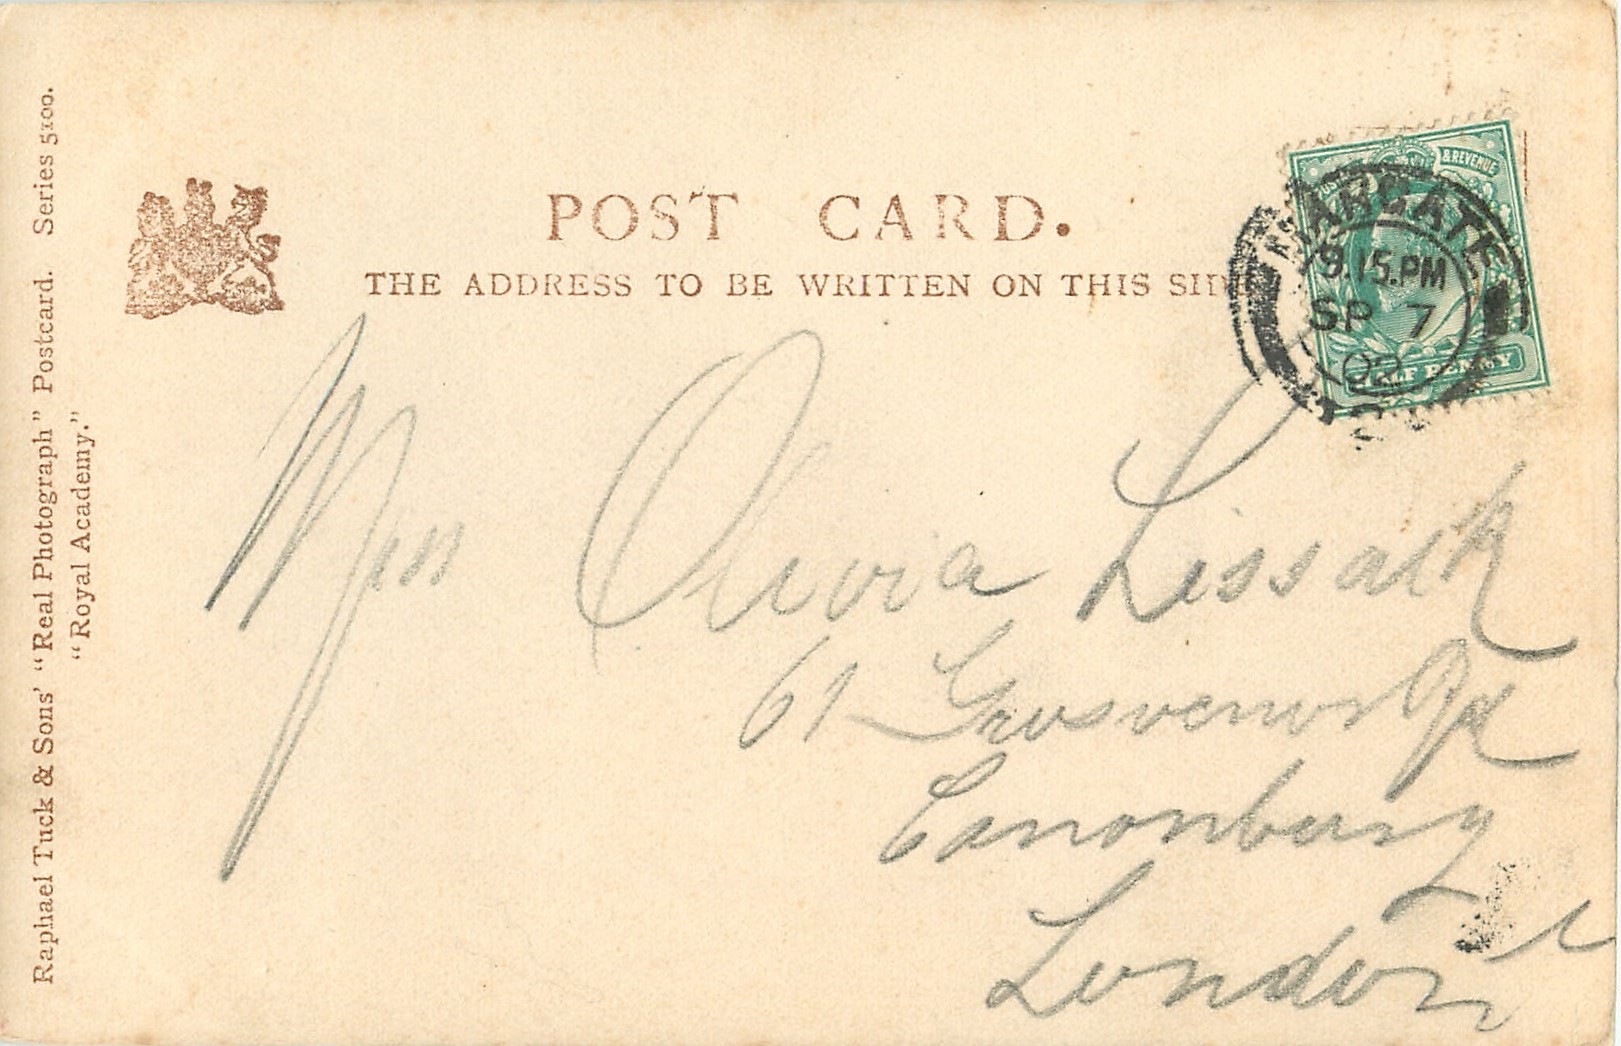 POST CARD.
THE ADDRESS TO BE WRITTEN ON THIS SIDE
& REVENUE
MARGATE
9.15.PM
SP 7
02
HALF PENNY
Miss Olivia Lissack
61 Grosvenor Rd
Canonbury
London
Raphael Tuck & Sons' "Real Photograph" Postcard. Series 5100.
"Royal Academy."